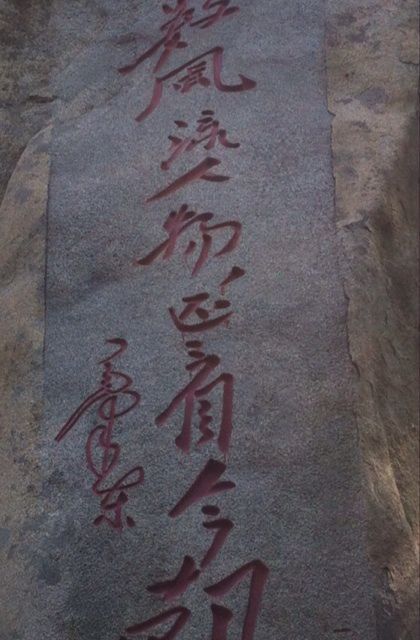 數風流人物还看今朝
毛澤東